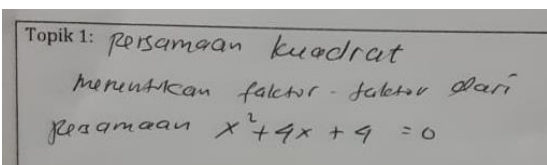 Topik 1: Persamaan kuadrat
menentukan faktor - faktor dari
Persamaan x² + 4x + 4 = 0